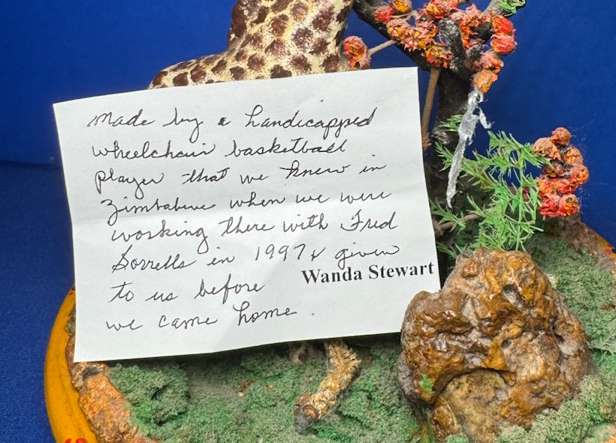 made by a handicapped
wheelchair basketball
player that we knew in
Zimbabwe when we were
working there with Fred
Sorrells in 1997 & given
to us before
Wanda Stewart
we came home.